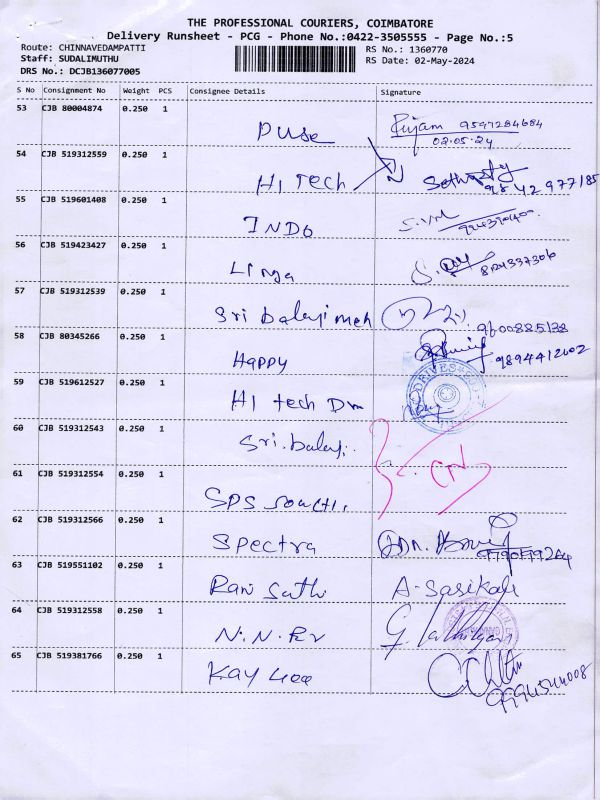 THE PROFESSIONAL COURIERS, COIMBATORE
Delivery Runsheet - PCG - Phone No.:0422-3505555 - Page No.:5
Route: CHINNAVEDAMPATTI RS No.: 1360770
Staff: SUDALIMUTHU RS Date: 02-May-2024
DRS No.: DCJB136077005
S No Consignment No Weight PCS Consignee Details Signature
53 CJB 80004874 0.250 1
PUSE 9597284684
02.05.24
54 CJB 519312559 0.250 1
HI Tech
55 CJB 519601408 0.250 1
INDO
56 CJB 519423427 0.250 1
Linga
57 CJB 519312539 0.250 1
Sri balaji meh
58 CJB 80345266 0.250 1
Happy 9894412602
59 CJB 519612527 0.250 1
HI tech Dm
60 CJB 519312543 0.250 1
Sri.balaji.
CN
61 CJB 519312554 0.250 1
62 CJB 519312566 0.250 1
Spectra
63 CJB 519551102 0.250 1
Rani Sathi A-Sasikala
64 CJB 519312558 0.250 1
65 CJB 519381766 0.250 1